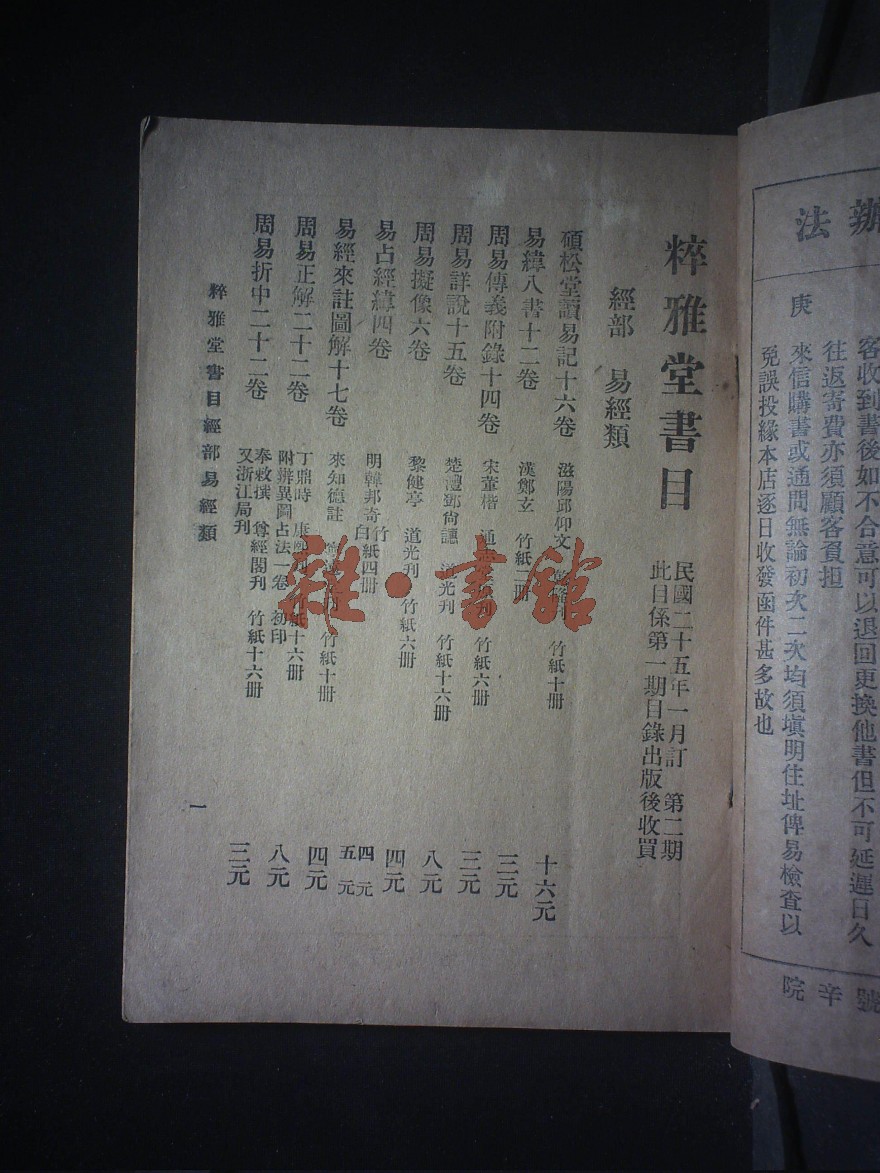 辦法
客收到書後如不合意可以退回更換他書但不可延遲日久
往返寄費亦須顧客負担
庚
來信購書或通問無論初次二次均須塡明住址俾易檢查以
免誤投緣本店逐日收發函件甚多故也
號辛院
粹雅堂書目
民國二十五年一月訂 第二期
此目係第一期目錄出版後收買
經部 易經類
碩松堂讀易記十六卷 滋陽邱仰文 竹紙十册 十六元
易緯八書十二卷 漢鄭玄 竹紙二册 三元
周易傳義附錄十四卷 宋董楷 通 刊 竹紙六册 三元
周易詳說十五卷 楚澧鄧尙譓 道光刊 竹紙十六册 八元
周易擬像六卷 黎健亭 道光刊 竹紙六册 四元
易占經緯四卷 明韓邦奇 竹白紙四册 四元 五元
易經來註圖解十七卷 來知德註 刊 竹紙十册 四元
周易正解二十二卷 丁鼎時 康熙刊 竹紙十六册 附辨異圖占法一卷 初印 八元
周易折中二十二卷 奉敕撰 尊經閣刊 竹紙十六册 又浙江局刊 三元
粹雅堂書目經部易經類
一
雜·書館